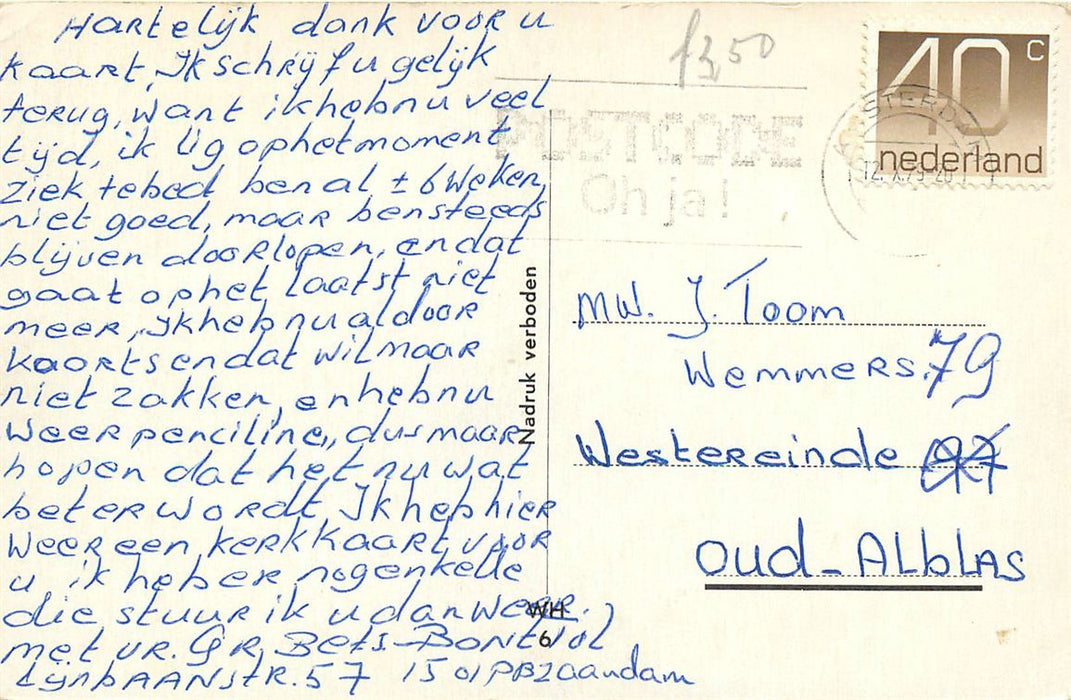 Hartelijk dank voor u
kaart, Ik schrijf u gelijk
terug, want ik heb nu veel
tijd, ik lig op het moment
ziek te bed ben al ± 6 weken,
niet goed, maar ben steeds
blijven doorlopen, en dat
gaat op het laatst niet
meer, Ik heb nu al door
koorts en dat wil maar
niet zakken, en heb nu
weer penciline,, dus maar
hopen dat het nu wat
beter wordt Ik heb hier
weer een kerkkaart, voor
u ik heb er nog enkele
die stuur ik u dan weer.
met vr. Gr. Bets-Bontvol
Lijnbaanstr. 57 1501 PB Zaandam
Nadruk verboden
WH
6
f 3,50
POSTCODE
Oh ja!
40 c
nederland
12.X.79-20
Mw. J. Toom
Wemmers. 79
Westereinde
Oud-Alblas